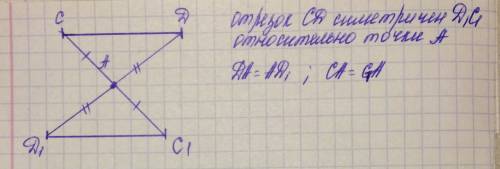 C
D
A
D₁
C₁
отрезок CD симетричен D₁C₁
относительно точки A
DA = AD₁ ; CA = C₁A